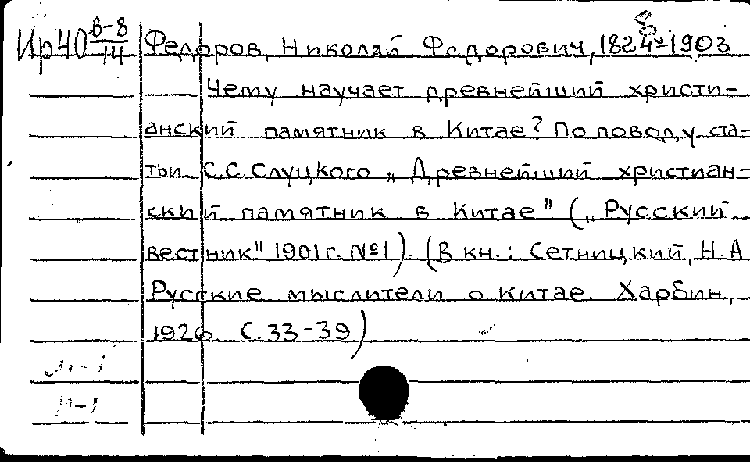 Ир40 В-8/14 Федоров, Николай Федорович, 1824-1903
Чему научает древнейший христи-
анский памятник в Китае? По поводу ста-
тьи С.С. Слуцкого „Древнейший христиан-
ский памятник в Китае" („Русский
вестник" 1901 г. №1). (В кн.: Сетницкий, Н.А
Русские мыслители о Китае. Харбин,
1926. С. 33-39)